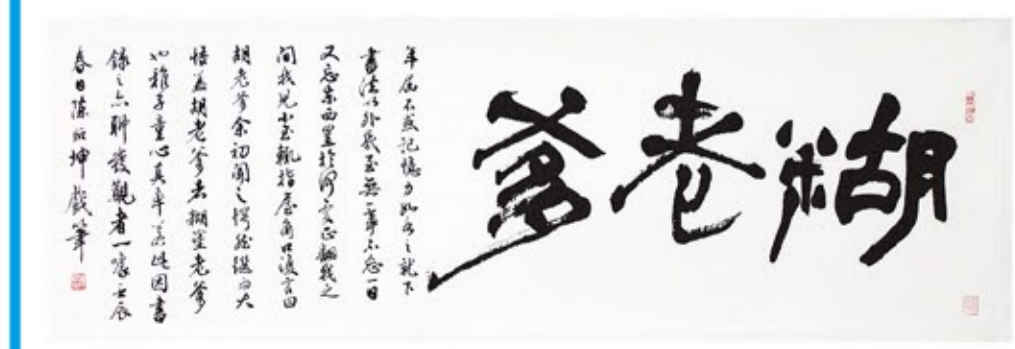 糊老爹
年届不惑記憶力如水之就下
書法以外幾至無事不忘一日
又忘東西置於何處正翻找之
間我兒小輒指屋角口復言曰
胡老爹余初聞之愕然繼而大
悟蓋胡老爹者糊塗老爹
也稚子童心真率若此因書
錄之亦聊發觀者一噱壬辰
春日陳坤戲筆